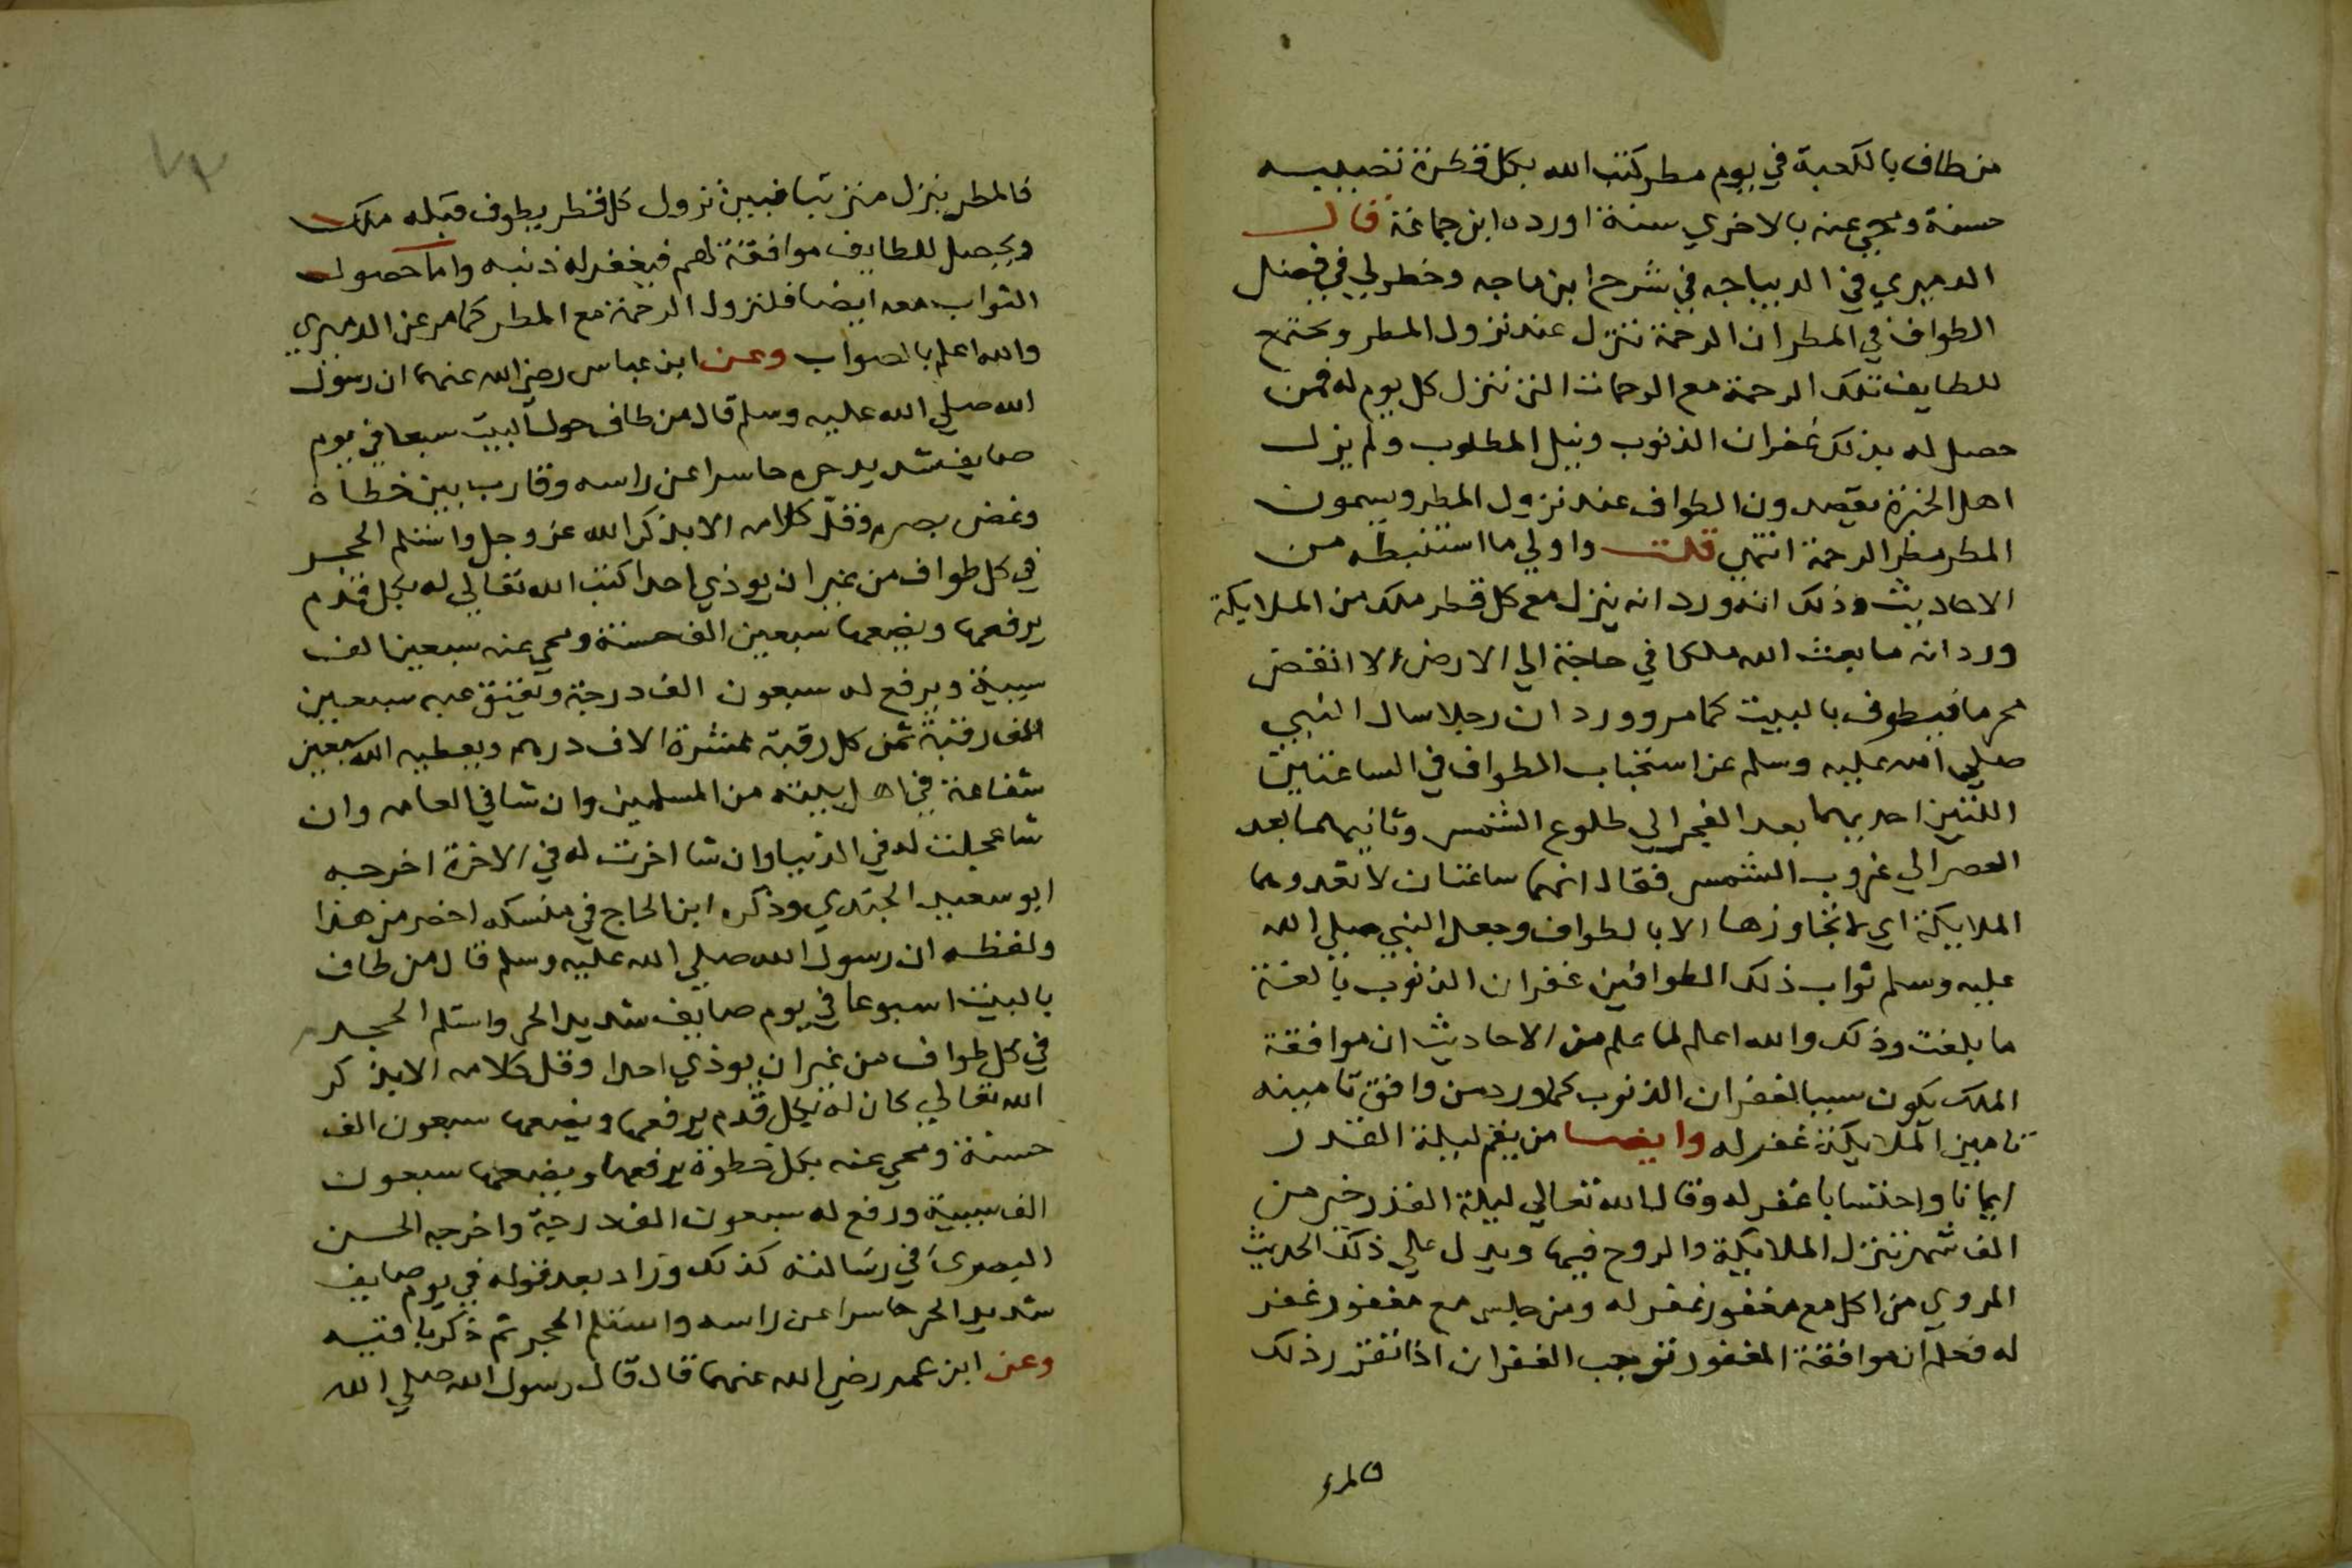 من طاف بالكعبة في يوم مطر كتب الله بكل قطرة تصيبه
حسنة ومحي عنه بالاخري سنة اورده ابن جماعة قال
الدميري في الديباجه في شرح ابن ماجه وخطر لي في فضل
الطواف في المطر ان الرحمة تنزل عند نزول المطر ويجتمع
للطايف تلك الرحمة مع الرحمات التي تنزل كل يوم له فمن
حصل له بذلك غفران الذنوب ونيل المطلوب ولم يزل
اهل الخيرة يقصدون الطواف عند نزول المطر ويسمون
المطر مطر الرحمة انتهي قلت واولي ما استنبطه من
الاحاديث وذلك انه ورد انه ينزل مع كل قطر ملك من الملايكة
ورد انه ما بعث الله ملكا في حاجة الي الارض الا انقض
محرما فيطوف بالبيت كما مر وورد ان رجلا سال النبي
صلي الله عليه وسلم عن استحباب الطواف في الساعتين
اللتين احديهما بعد الفجر الي طلوع الشمس وثانيهما بعد
العصر الي غروب الشمس فقال انهما ساعتان لا تعدوهما
الملايكة اي لا تجاوزها الا بالطواف وجعل النبي صلي الله
عليه وسلم ثواب ذلك الطوافين غفران الذنوب بالغة
ما بلغت وذلك والله اعلم لما علم من الاحاديث ان موافقة
الملك يكون سببا لغفران الذنوب كما ورد من وافق تامينه
تامين الملايكة غفر له وايضا من يقم ليلة القدر
ايمانا واحتسابا غفر له وقال الله تعالي ليلة القدر خير من
الف شهر تنزل الملايكة والروح فيها ويدل علي ذلك الحديث
المروي من اكل مع مغفور غفر له ومن جلس مع مغفور غفر
له فعلم ان موافقة المغفور توجب الغفران اذا تقرر ذلك
فالمطر ينزل منزتبا فيبين نزول كل قطر يطوف قبله ملك
ويحصل للطايف موافقة لهم فيغفر له ذنبه واما حصول
الثواب معه ايضا فلنزول الرحمة مع المطر كما مر عن الدميري
والله اعلم بالصواب وعن ابن عباس رضي الله عنهما ان رسول
الله صلي الله عليه وسلم قال من طاف حول البيت سبعا في يوم
صايف شديد حره حاسرا عن راسه وقارب بين خطاه
وغض بصره وقل كلامه الا بذكر الله عز وجل واستلم الحجر
في كل طواف من غير ان يوذي احدا كتب الله تعالي له بكل قدم
يرفعها ويضعها سبعين الف حسنة ومحي عنه سبعين الف
سيية ويرفع له سبعون الف درجة ويعتق عنه سبعين
الف رقبة ثمن كل رقبة عشرة الاف درهم ويعطيه الله سبعين
شفاعة في اهل بيته من المسلمين وان شا في العامه وان
شا عجلت له في الدنيا وان شا اخرت له في الاخرة اخرجه
ابو سعيد الجندي وذكره ابن الحاج في منسكه اخصر من هذا
ولفظه ان رسول الله صلي الله عليه وسلم قال من طاف
بالبيت اسبوعا في يوم صايف شديد الحر واستلم الحجر
في كل طواف من غير ان يوذي احدا وقل كلامه الا بذكر
الله تعالي كان له بكل قدم يرفعها ويضعها سبعون الف
حسنة ومحي عنه بكل خطوة يرفعها ويضعها سبعون
الف سيية ورفع له سبعون الف درجة واخرجه الحسن
البصري في رسالته كذلك وزاد بعد قوله في يوم صايف
شديد الحر حاسرا عن راسه واستلم الحجر ثم ذكر باقيه
وعن ابن عمر رضي الله عنهما قال قال رسول الله صلي الله